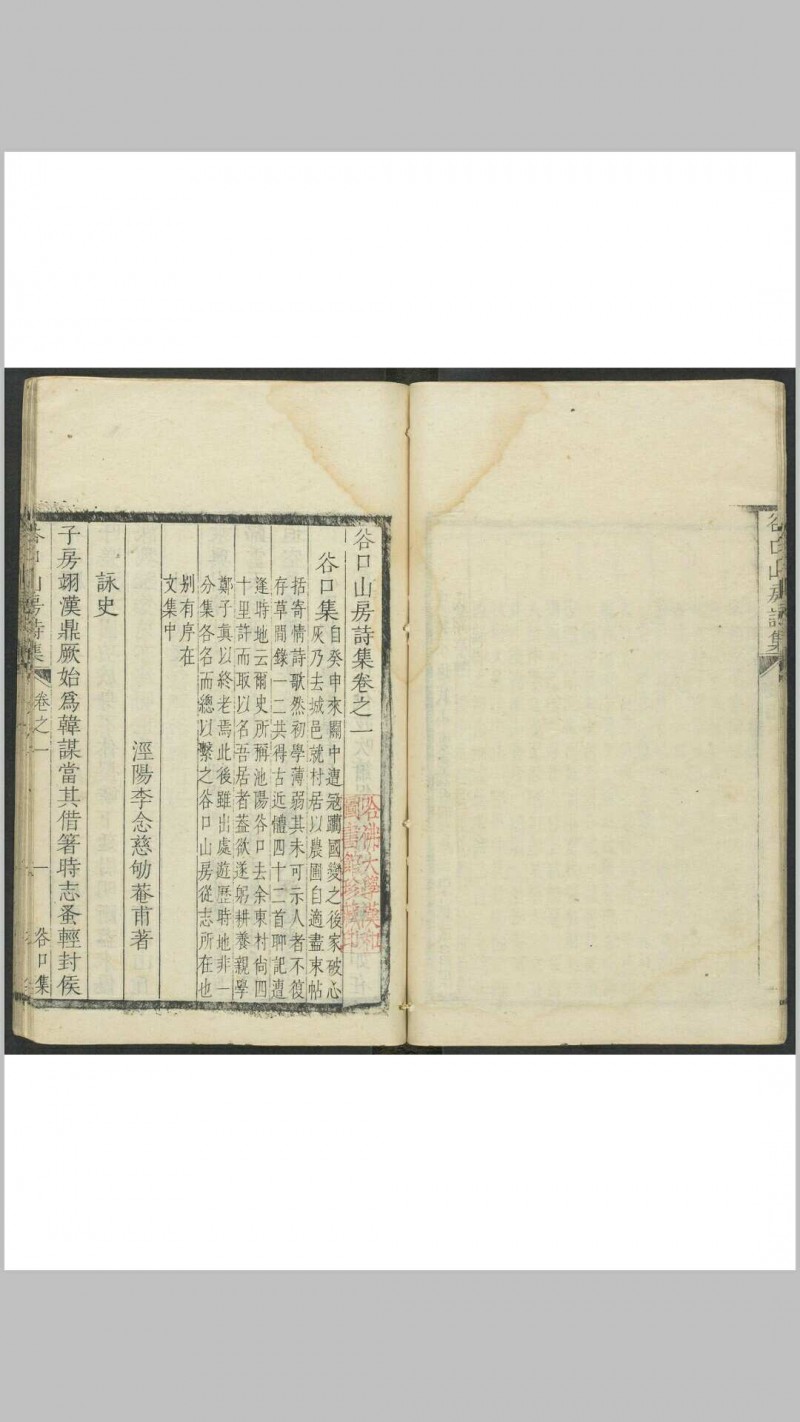 谷口山房詩集
谷口山房詩集卷之一
谷口集
自癸申來關中遭冦躪國變之後家破心
灰乃去城邑就村居以農圃自適盡束帖
括寄情詩歌然初學薄弱其未可示人者不復
存草間錄一二共得古近體四十二首聊記遭
逢時地云爾史所稱池陽谷口去余東村尚四
十里許而取以名吾居者蓋欲遂躬耕養親學
鄭子真以終老焉此後雖出處遊歷時地非一
分集各名而總以繫之谷口山房從志所在也
別有序在
文集中
涇陽李念慈劬菴甫著
詠史
子房翊漢鼎厥始爲韓謀當其借箸時志蚤輕封侯
谷口山房詩集
卷之一
一
谷口集
哈佛大學漢和
圖書館珍藏印